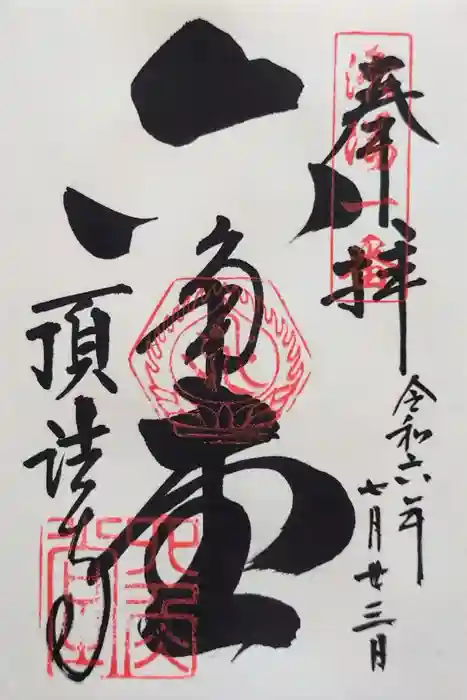 奉拝
洛陽一番
令和六年
七月廿三日
六角堂
頂法寺